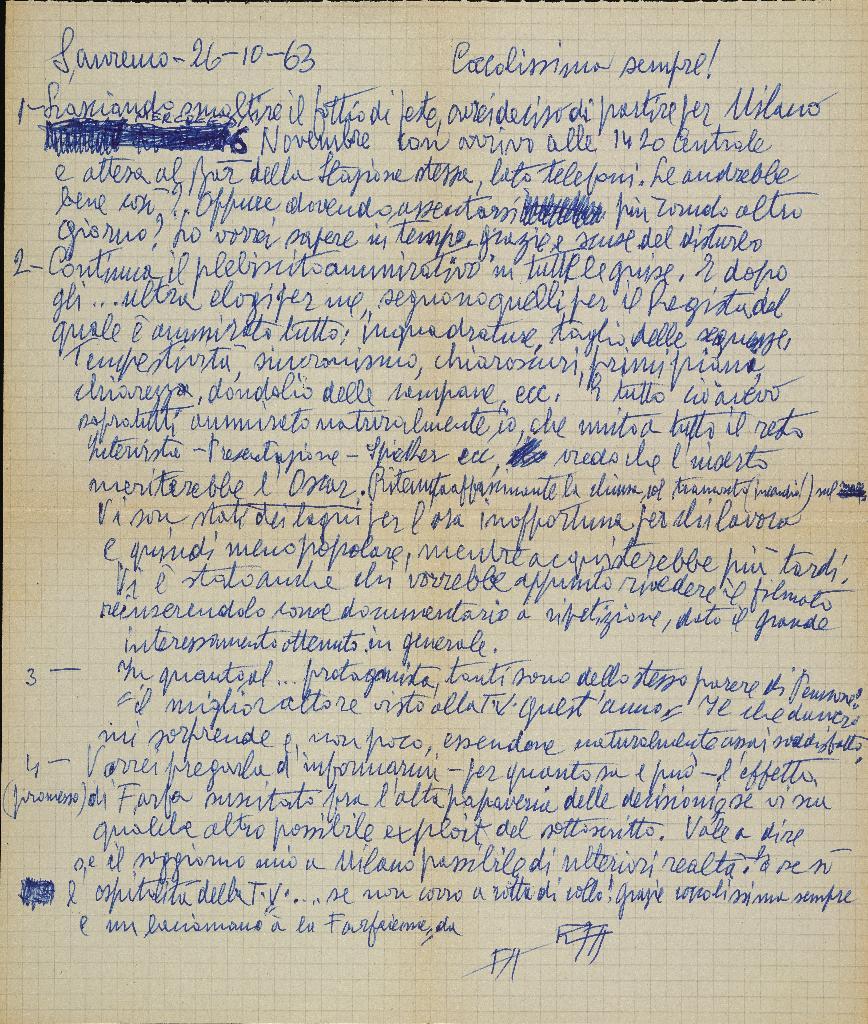 Sanremo - 26-10-63 Coccolissimo sempre!
1- Lasciando smaltire il fottio di feste, avrei deciso di partire per Milano
MERCOLEDI
6 Novembre con arrivo alle 14 20 Centrale
e attesa al Bar della Stazione stessa, lato telefoni. Le andrebbe
bene così? Oppure dovendo assentarsi più comodo altro
giorno? Lo vorrei sapere in tempo, grazie e scuse del disturbo
2- Continua il plebiscito ammirativo in tutte le guise. E dopo
gli ... ultra elogi per me, seguono quelli per il Regista del
quale è ammirato tutto: inquadrature, taglio delle sequenze,
Tempestività, sincronismo, chiaroscuri, primi piani,
chiarezza, dondolio delle campane, ecc. E tutto ciò avevo
sopratutti ammirato naturalmente io, che unito a tutto il resto
Intervista - Presentazione - Speaker ecc, credo che l'inserto
meriterebbe l'Oscar. (Ritenuta affascinante la chiusa col tramonto
Vi son stati dei lagni per l'ora inopportuna per chi lavora
e quindi meno popolare, mentre acquisterebbe più tardi.
Vi è stato anche chi vorrebbe appunto rivedere il filmato
reinserendolo come documentario a ripetizione, dato il grande
interessamento ottenuto in generale.
3 - In quanto al ... protagonista, tanti sono dello stesso parere di
"il miglior attore visto alla T.V. quest'anno" Il che davvero
mi sorprende e non poco, essendone naturalmente assai soddisfatto.
4 - Vorrei pregarla d'informarmi - per quanto sa e può - l'effetto
(promesso) di Farfa suscitato fra l'alta papaveria delle decisioni, se vi sia
qualche altro possibile exploit del sottoscritto. Vale a dire
se il soggiorno mio a Milano passibile di ulteriori realtà. E se sì
l'ospitalità della T.V. .... se non corro a rotta di collo! Grazie coccolissimo sempre
e un baciamano a la Farfaiema, da